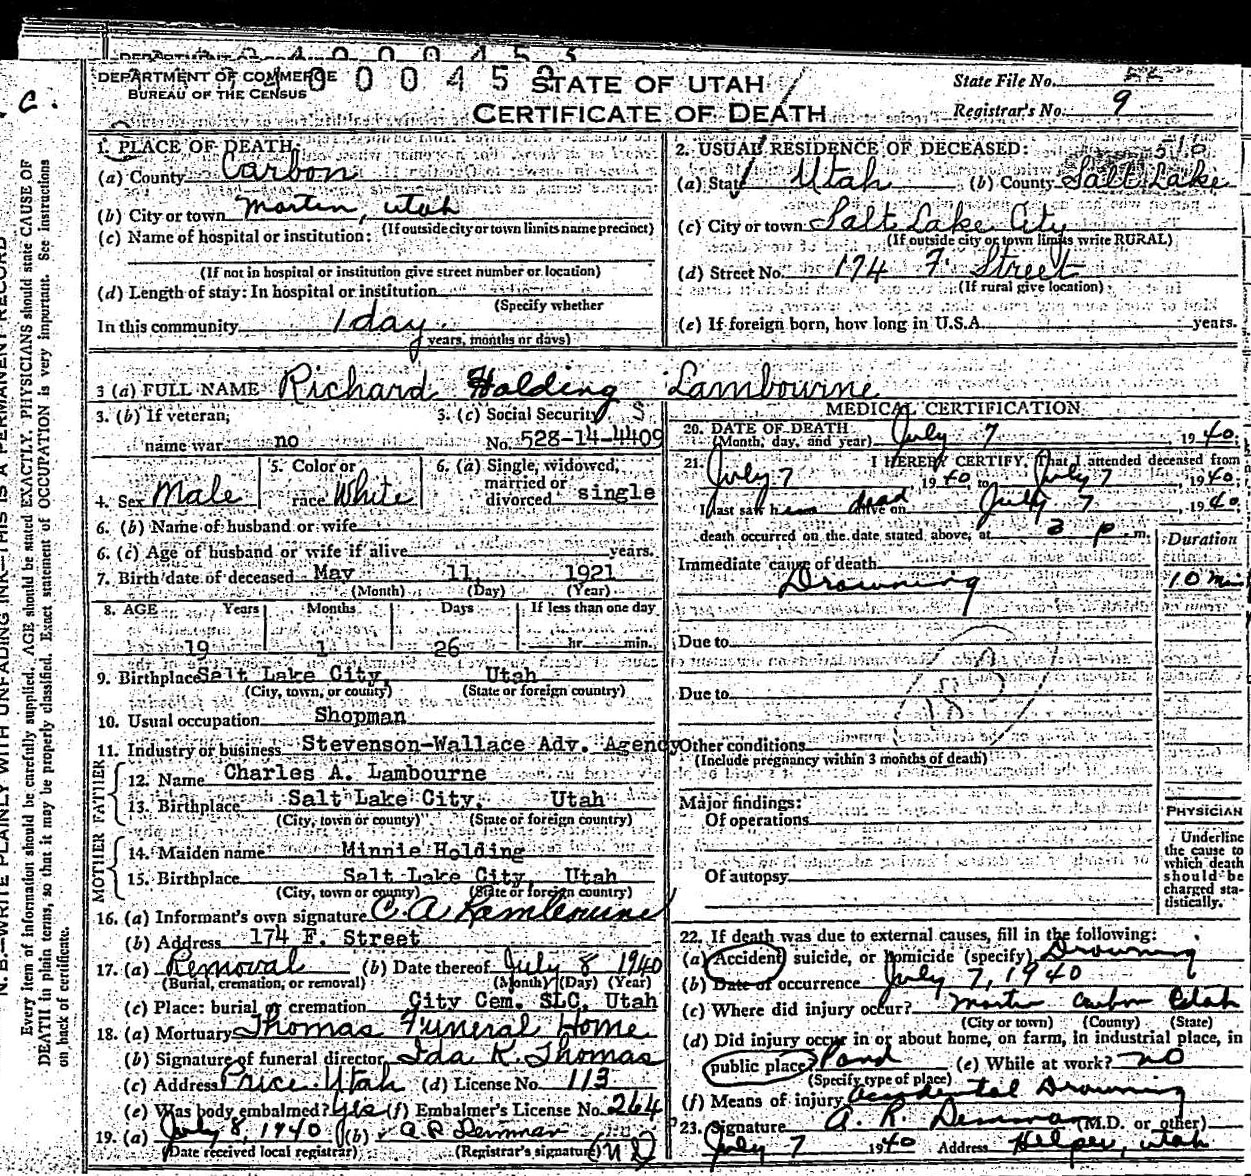 C.
DEPARTMENT OF COMMERCE
BUREAU OF THE CENSUS
STATE OF UTAH
CERTIFICATE OF DEATH
State File No.
Registrar's No. 9
1. PLACE OF DEATH:
(a) County Carbon
(b) City or town Martin, Utah
(If outside city or town limits name precinct)
(c) Name of hospital or institution:
(If not in hospital or institution give street number or location)
(d) Length of stay: In hospital or institution
(Specify whether
In this community 1 day
years, months or days)
2. USUAL RESIDENCE OF DECEASED:
(a) State Utah (b) County Salt Lake
(c) City or town Salt Lake City
(If outside city or town limits write RURAL)
(d) Street No. 174 F. Street
(If rural give location)
(e) If foreign born, how long in U.S.A. years.
3 (a) FULL NAME Richard Holding Lambourne
3. (b) If veteran, 3. (c) Social Security
name war no No. 528-14-4409
4. Sex Male 5. Color or race White 6. (a) Single, widowed, married or divorced single
6. (b) Name of husband or wife
6. (c) Age of husband or wife if alive years.
7. Birth date of deceased May 11, 1921
(Month) (Day) (Year)
8. AGE Years Months Days If less than one day
19 1 26 hr. min.
9. Birthplace Salt Lake City, Utah
(City, town, or county) (State or foreign country)
10. Usual occupation Shopman
11. Industry or business Stevenson-Wallace Adv. Agency
FATHER
12. Name Charles A. Lambourne
13. Birthplace Salt Lake City, Utah
(City, town or county) (State or foreign country)
MOTHER
14. Maiden name Minnie Holding
15. Birthplace Salt Lake City, Utah
(City, town or county) (State or foreign country)
16. (a) Informant's own signature C. A. Lambourne
(b) Address 174 F. Street
17. (a) Removal (b) Date thereof July 8 1940
(Burial, cremation, or removal) (Month) (Day) (Year)
(c) Place: burial or cremation City Cem. SLC, Utah
18. (a) Mortuary Thomas Funeral Home
(b) Signature of funeral director Ida K. Thomas
(c) Address Price, Utah (d) License No. 113
(e) Was body embalmed? Yes (f) Embalmer's License No. 264
19. (a) July 8, 1940 (b) A R Demman
(Date received local registrar) (Registrar's signature)
MEDICAL CERTIFICATION
20. DATE OF DEATH
(Month, day, and year) July 7 1940.
21. I HEREBY CERTIFY, That I attended deceased from
July 7 1940 to July 7, 1940.
I last saw him dead alive on July 7, 1940.
death occurred on the date stated above, at 3 p m.
Duration
Immediate cause of death
Drowning 10 min
Due to
Due to
Other conditions
(Include pregnancy within 3 months of death)
Major findings:
Of operations
Of autopsy
PHYSICIAN
Underline
the cause to
which death
should be
charged sta-
tistically.
22. If death was due to external causes, fill in the following:
(a) Accident, suicide, or homicide (specify) Drowning
(b) Date of occurrence July 7, 1940
(c) Where did injury occur? Martin Carbon Utah
(City or town) (County) (State)
(d) Did injury occur in or about home, on farm, in industrial place, in
public place? Pond (e) While at work? no
(Specify type of place)
(f) Means of injury Accidental Drowning
23. Signature A. R Demman (M.D. or other)
July 7 1940 Address Helper, Utah
N. B.—WRITE PLAINLY WITH UNFADING INK—THIS IS A PERMANENT RECORD
Every item of information should be carefully supplied. AGE should be stated EXACTLY. PHYSICIANS should state CAUSE OF
DEATH in plain terms, so that it may be properly classified. Exact statement of OCCUPATION is very important. See instructions
on back of certificate.